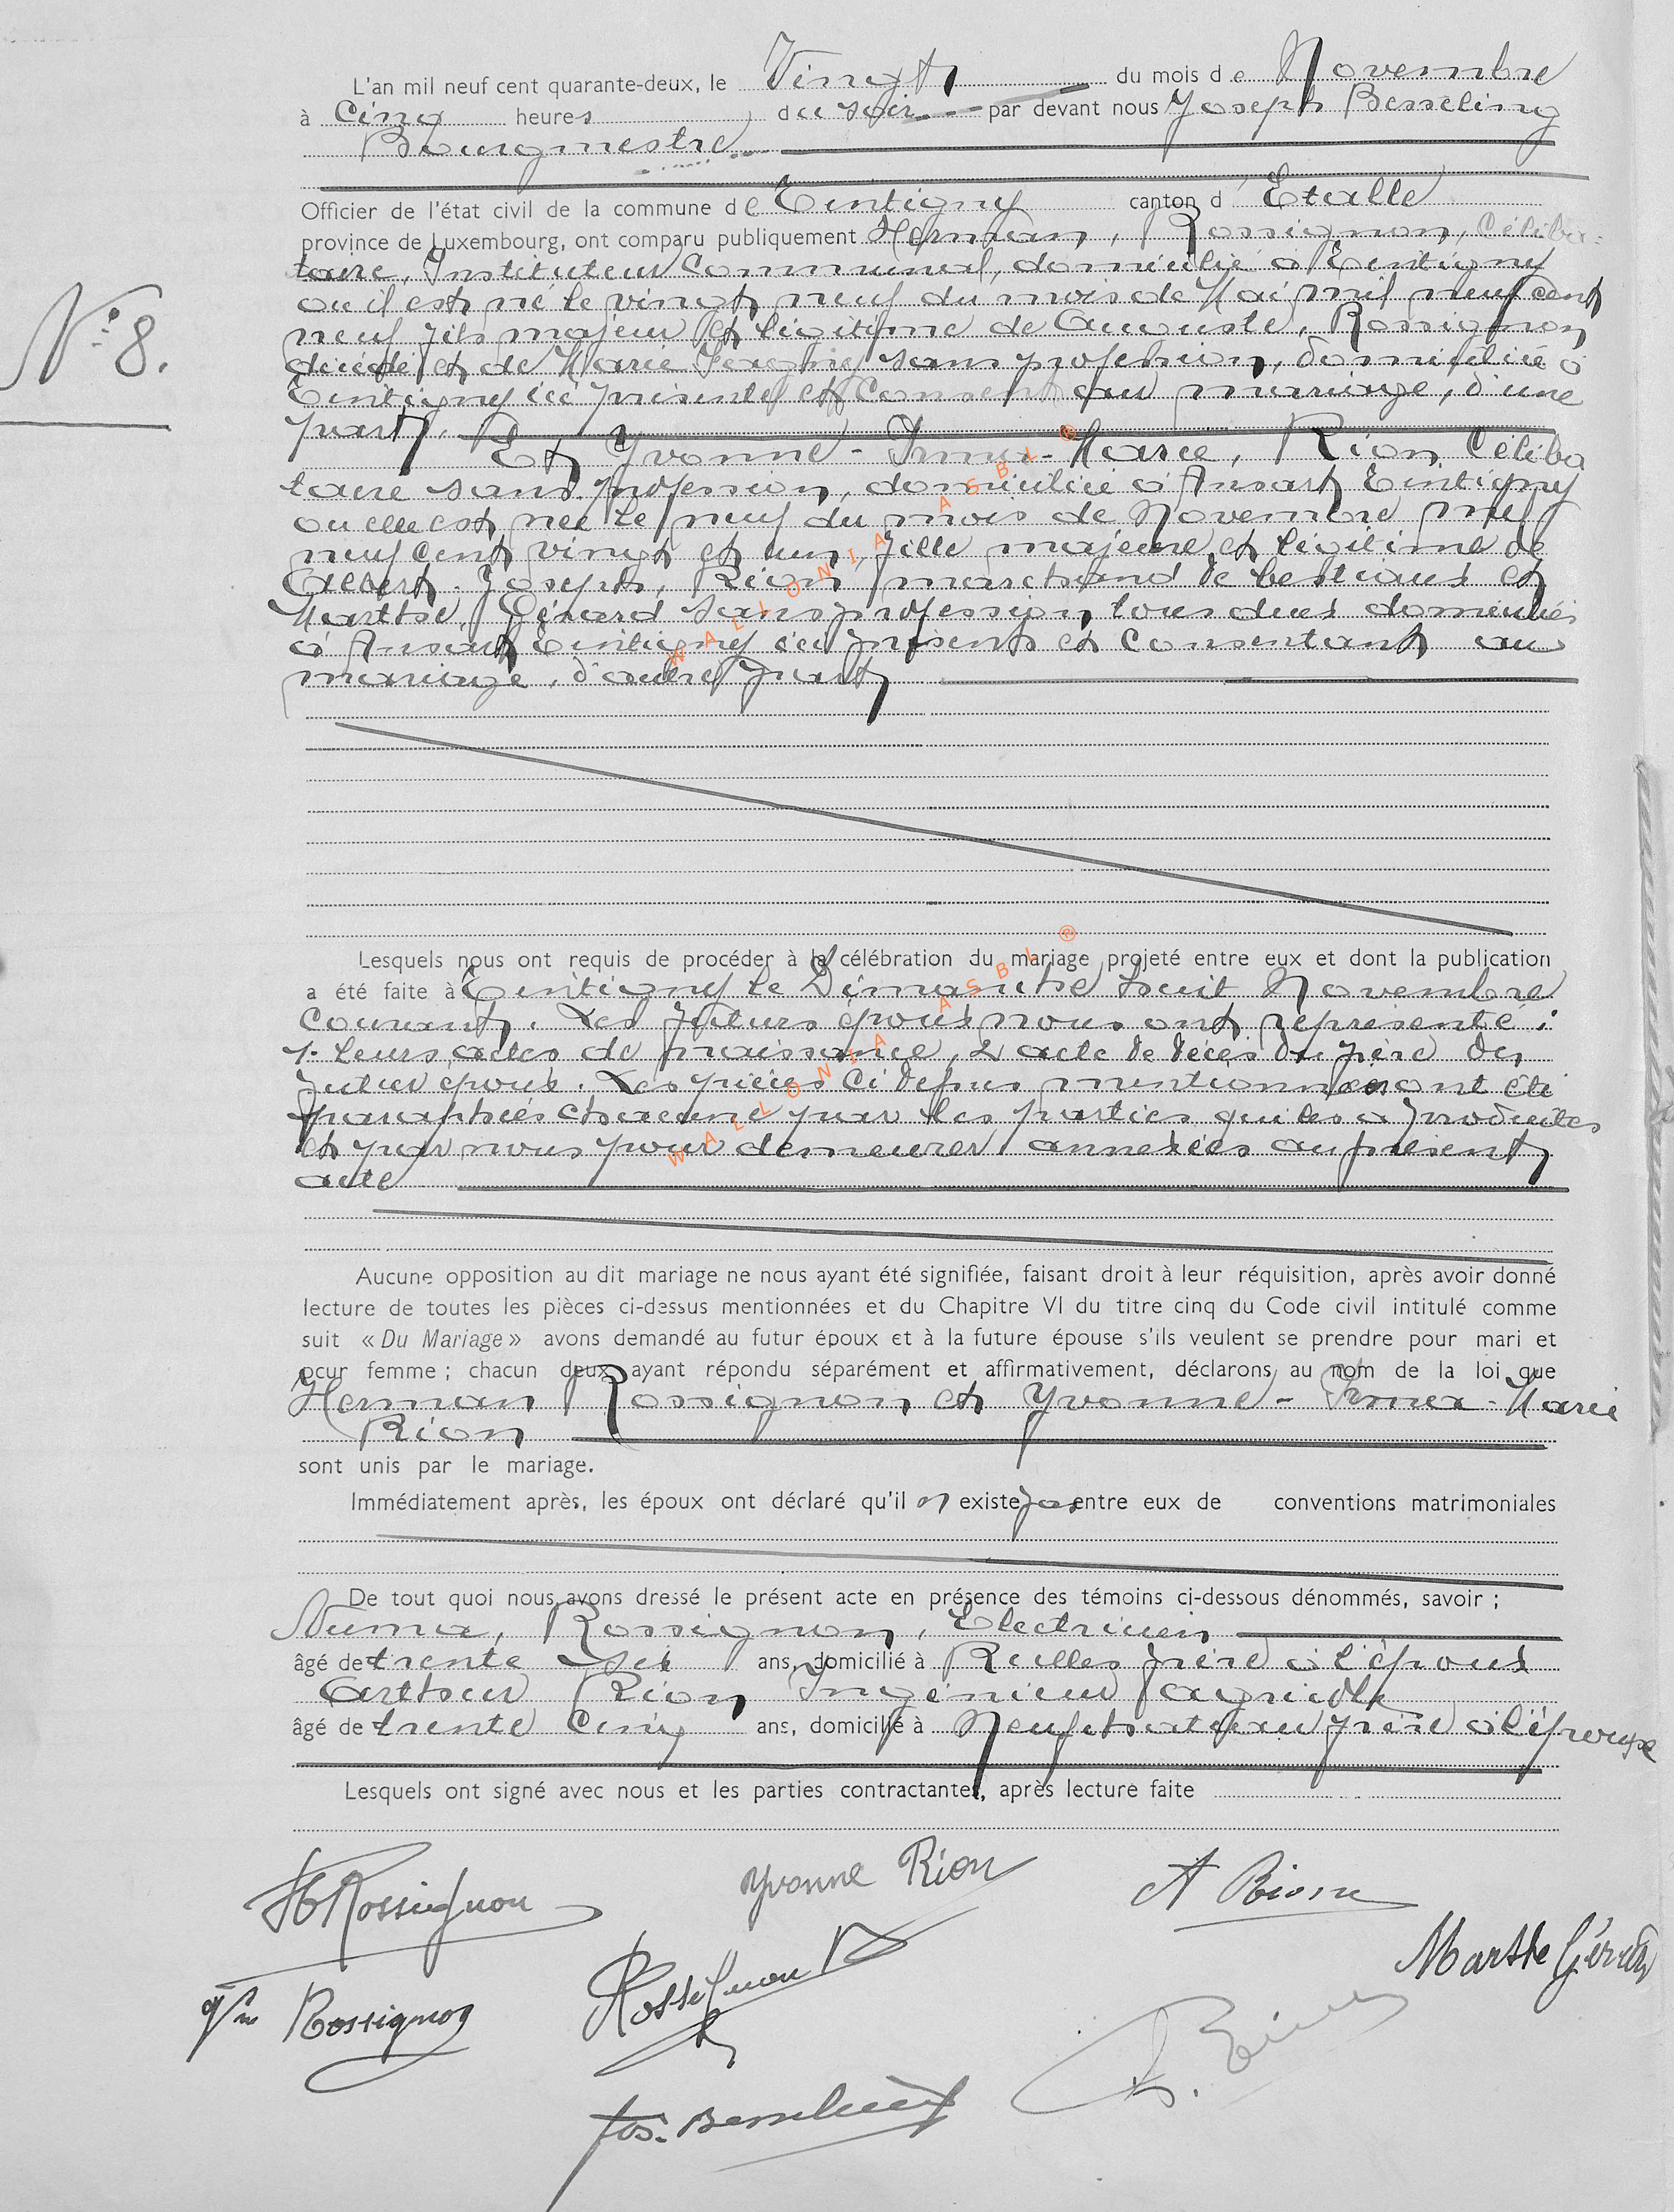 L'an mil neuf cent quarante-deux, le Vingt du mois de Novembre
à Cinq heures du soir par devant nous Joseph Besseling
Bourgmestre
Officier de l'état civil de la commune de Tintigny canton d' Etalle
province de Luxembourg, ont comparu publiquement Herman, Rossignon, Céliba-
taire, Instituteur Communal, domicilié à Tintigny
N° 8.
ou il est né le vingt neuf du mois de Mai mil neuf cent
neuf fils majeur et légitime de Auguste, Rossignon
décédé et de Marie sans profession, domiciliée à
Tintigny ici présente et Consent au mariage, d'une
part.
Et Yvonne-Irma-Marie, Rion Céliba
taire sans profession, domiciliée à Ansart Tintigny
ou elle est née le neuf du mois de Novembre mil
neuf cent vingt et un, fille majeure et légitime de
Albert-Joseph, Rion marchand de bestiaux et
Marthe, Gérard sans profession tous deux domiciliés
à Ansart Tintigny ici présents et Consentant au
mariage, d'autre part
WALLONIA ASBL ®
Lesquels nous ont requis de procéder à la célébration du mariage projeté entre eux et dont la publication
a été faite à Tintigny le Dimanche huit Novembre
Courant. Les futurs époux nous ont représenté :
1. leurs actes de naissance, 2 acte de décès du père du
futur époux. Les pièces ci dessus mentionnées ont été
paraphées chacune par les parties qui les a produites
et par nous pour demeurer annexées au présent
acte
WALLONIA ASBL ®
Aucune opposition au dit mariage ne nous ayant été signifiée, faisant droit à leur réquisition, après avoir donné
lecture de toutes les pièces ci-dessus mentionnées et du Chapitre VI du titre cinq du Code civil intitulé comme
suit « Du Mariage » avons demandé au futur époux et à la future épouse s'ils veulent se prendre pour mari et
pour femme ; chacun deux ayant répondu séparément et affirmativement, déclarons au nom de la loi que
Herman Rossignon et Yvonne-Irma-Marie
Rion
sont unis par le mariage.
Immédiatement après, les époux ont déclaré qu'il n existe pas entre eux de conventions matrimoniales
De tout quoi nous avons dressé le présent acte en présence des témoins ci-dessous dénommés, savoir ;
Numa, Rossignon, Electricien
âgé de trente six ans, domicilié à Rulles frère à l'époux
Arthur Rion Ingénieur agricole
âgé de trente Cinq ans, domicilié à Neufchateau frère à l'épouse
Lesquels ont signé avec nous et les parties contractantes, après lecture faite
H Rossignon
Yvonne Rion
A Rion
Marthe Gérard
Rossignon
Rossignon N
A. Rion
Jos. Besseling